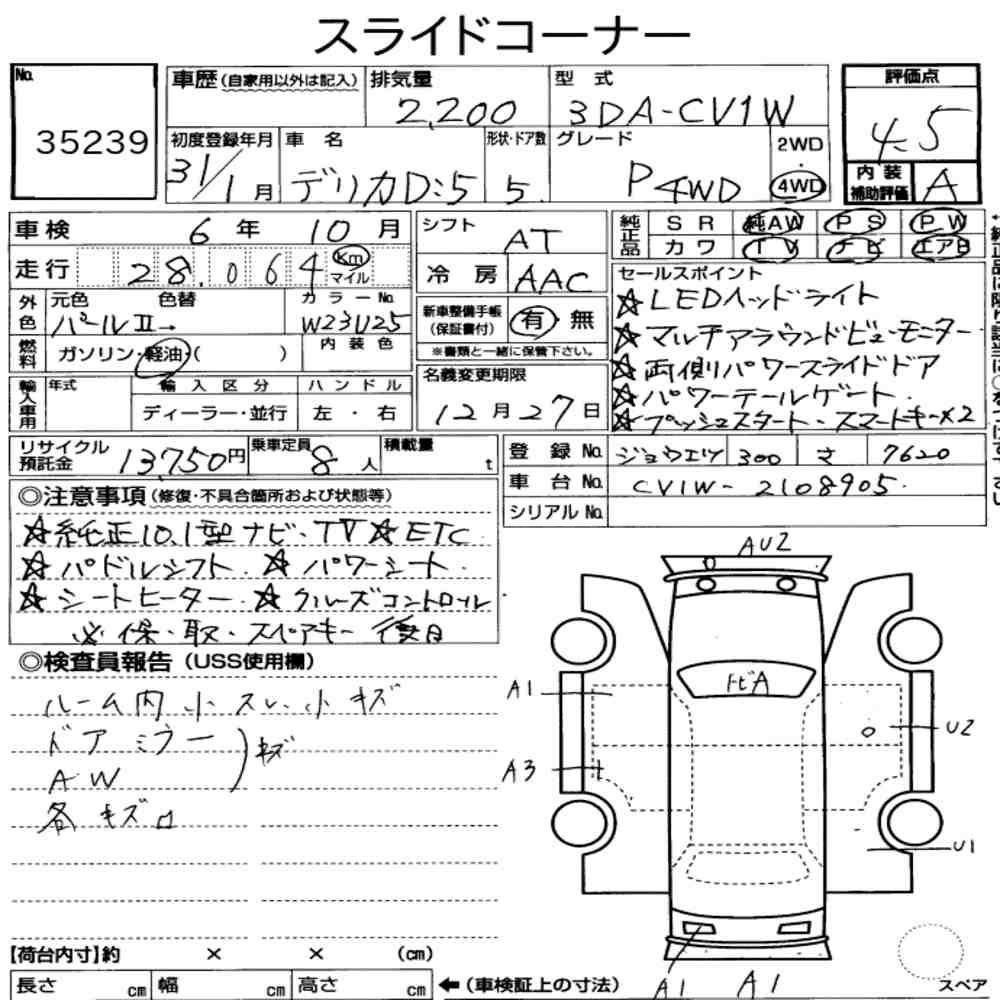 スライドコーナー
No.
35239
車歴(自家用以外は記入)
排気量
2,200
型 式
3DA-CV1W
評価点
4.5
初度登録年月
31/1月
車 名
デリカD:5
形状・ドア数
5
グレード
P 4WD
2WD
・
4WD
内装補助評価
A
車検 6年 10月
走行 28.064 Km マイル
シフト AT
冷房 AAC
純正品 SR 純AW PS PW
カワ TV ナビ エアB
外色
元色 色替
パールII→
カラーNo.
W23U25
燃料
ガソリン・軽油・( )
内装色
新車整備手帳(保証書付)
有・無
※書類と一緒に保管下さい。
輸入車用
年式
輸入区分
ディーラー・並行
ハンドル
左・右
名義変更期限
12月27日
セールスポイント
☆LEDヘッドライト
☆マルチアラウンドビューモニター
☆両側パワースライドドア
☆パワーテールゲート
☆プッシュスタート・スマートキー×2
リサイクル預託金
13,750円
乗車定員
8人
積載量
t
登録No.
ジョウエツ 300 さ 7620
車台No.
CV1W-2108905
シリアルNo.
◎注意事項(修復・不具合箇所および状態等)
☆純正10.1型ナビ・TV☆ETC
☆パドルシフト ☆パワーシート
☆シートヒーター ☆クルーズコントロール
必 保・取・スペアキー 後日
◎検査員報告(USS使用欄)
ルーム内 小スレ、小キズ
ドアミラー
AW
)キズ
各キズロ
AU2
トビA
A1
U2
A3
U1
【荷台内寸】約 × × (cm)
長さ cm 幅 cm 高さ cm
←(車検証上の寸法)
A1
A1
スペア